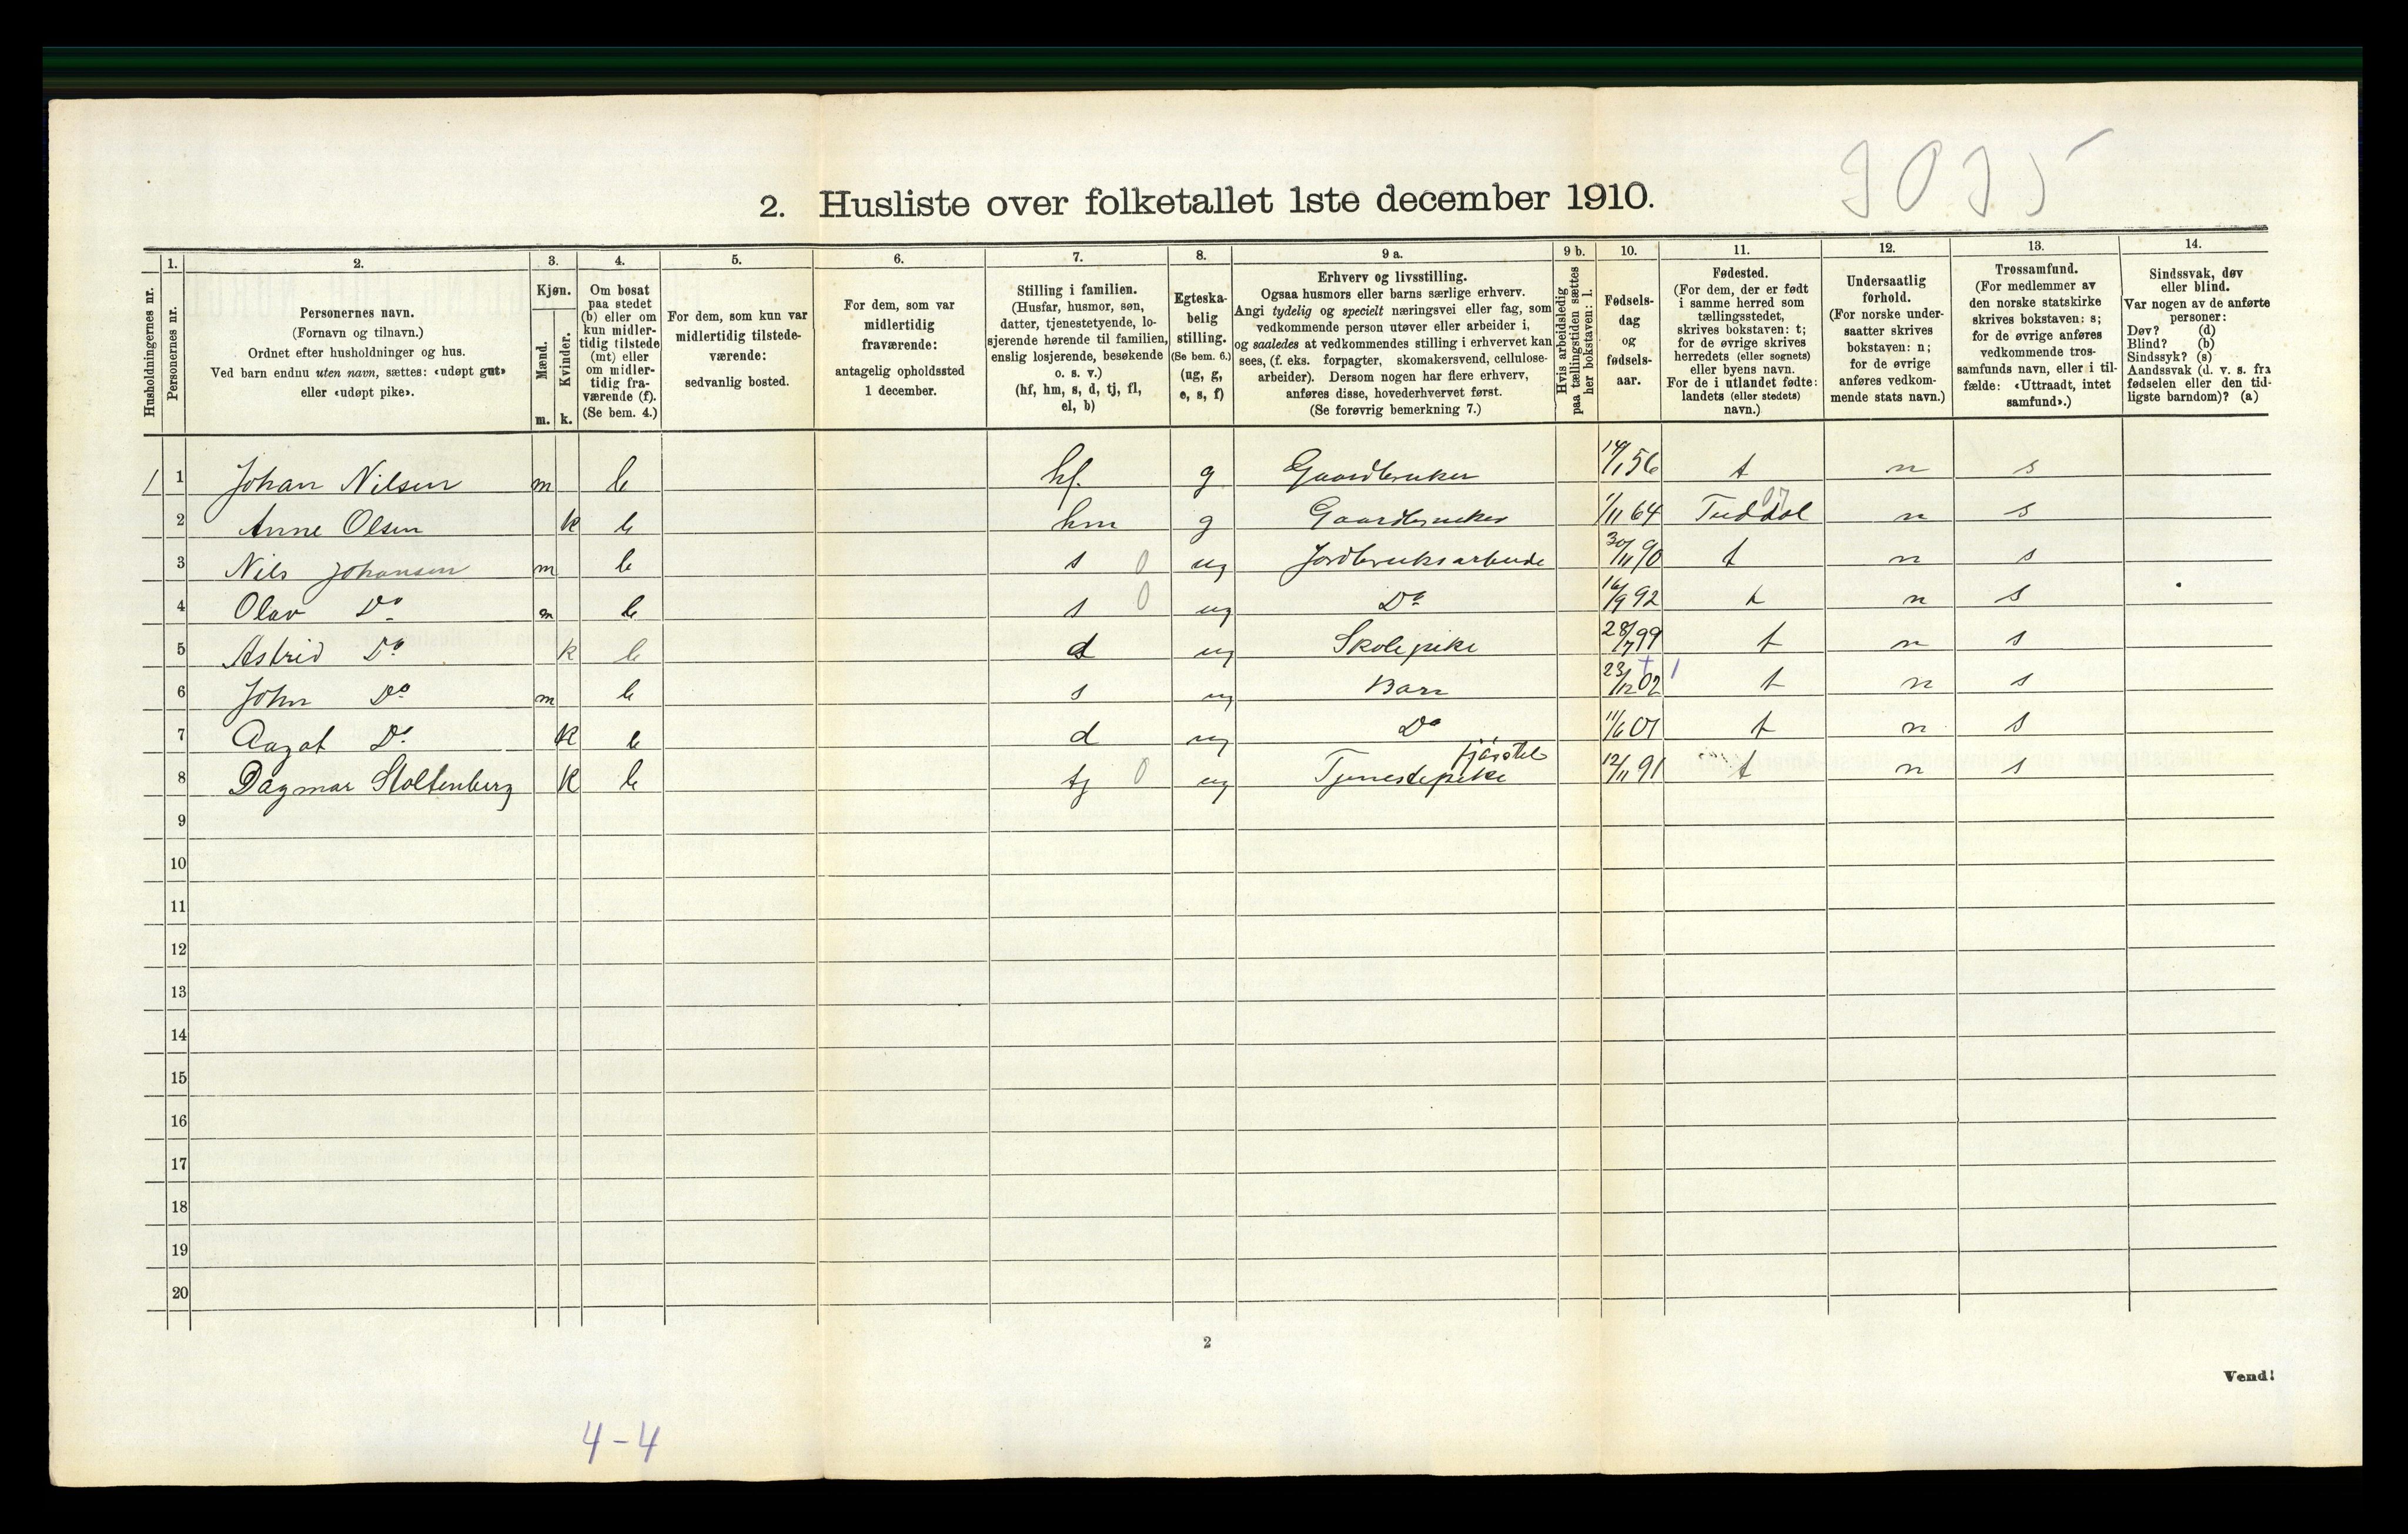 9035
2. Husliste over folketallet 1ste december 1910.
Husholdningernes nr.
1.
Personernes nr.
2.
Personernes navn.
(Fornavn og tilnavn.)
Ordnet efter husholdninger og hus.
Ved barn endnu uten navn, sættes: «udøpt gut»
eller «udøpt pike».
3.
Kjøn.
Mænd.
Kvinder.
m. k.
4.
Om bosat
paa stedet
(b) eller om
kun midler-
tidig tilstede
(mt) eller
om midler-
tidig fra-
værende (f).
(Se bem. 4.)
5.
For dem, som kun var
midlertidig tilstede-
værende:
sedvanlig bosted.
6.
For dem, som var
midlertidig
fraværende:
antagelig opholdssted
1 december.
7.
Stilling i familien.
(Husfar, husmor, søn,
datter, tjenestetyende, lo-
sjerende hørende til familien,
enslig losjerende, besøkende
o. s. v.)
(hf, hm, s, d, tj, fl,
el, b)
8.
Egteska-
belig
stilling.
(Se bem. 6.)
(ug, g,
e, s, f)
9 a.
Erhverv og livsstilling.
Ogsaa husmors eller barns særlige erhverv.
Angi tydelig og specielt næringsvei eller fag, som
vedkommende person utøver eller arbeider i,
og saaledes at vedkommendes stilling i erhvervet kan
sees, (f. eks. forpagter, skomakersvend, cellulose-
arbeider). Dersom nogen har flere erhverv,
anføres disse, hovederhvervet først.
(Se forøvrig bemerkning 7.)
9 b.
Hvis arbeidsledig
paa tællingstiden sættes
her bokstaven: l.
10.
Fødsels-
dag
og
fødsels-
aar.
11.
Fødested.
(For dem, der er født
i samme herred som
tællingsstedet,
skrives bokstaven: t;
for de øvrige skrives
herredets (eller sognets)
eller byens navn.
For de i utlandet fødte:
landets (eller stedets)
navn.)
12.
Undersaatlig
forhold.
(For norske under-
saatter skrives
bokstaven: n;
for de øvrige
anføres vedkom-
mende stats navn.)
13.
Trossamfund.
(For medlemmer av
den norske statskirke
skrives bokstaven: s;
for de øvrige anføres
vedkommende tros-
samfunds navn, eller i til-
fælde: «Uttraadt, intet
samfund».)
14.
Sindssvak, døv
eller blind.
Var nogen av de anførte
personer:
Døv? (d)
Blind? (b)
Sindssyk? (s)
Aandssvak (d. v. s. fra
fødselen eller den tid-
ligste barndom)? (a)
1 1 Johan Nilsen m b hf. g Gaardbruker 14/1 56 t n s
2 Anne Olsen k b hm g Gaardbruker 1/11 64 Tuddal n s
3 Nils Johansen m b s 0 ug Jordbruksarbeide 30/11 90 t n s
4 Olav Do m b s 0 ug Do 16/9 92 t n s
5 Astrid Do k b d ug Skolepike 28/7 99 t n s
6 John Do m b s ug Barn 23/12 02 1 t n s
7 Aagot Do k b d ug Do 11/6 07 t n s
8 Dagmar Stoltenberg k b tj 0 ug Tjenestepike 12/11 91 t n s
9
10
11
12
13
14
15
16
17
18
19
20
2
Vend!
4-4